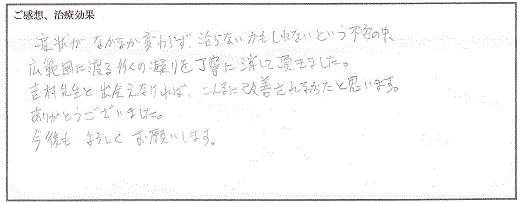 ご感想、治療効果
症状がなかなか変わらず、治らないかもしれないという不安の中、
広範囲に渡る多くの凝りを丁寧に消して頂きました。
吉村先生と出会えなければ、こんなに改善されなかったと思います。
ありがとうございました。
今後もよろしくお願いします。